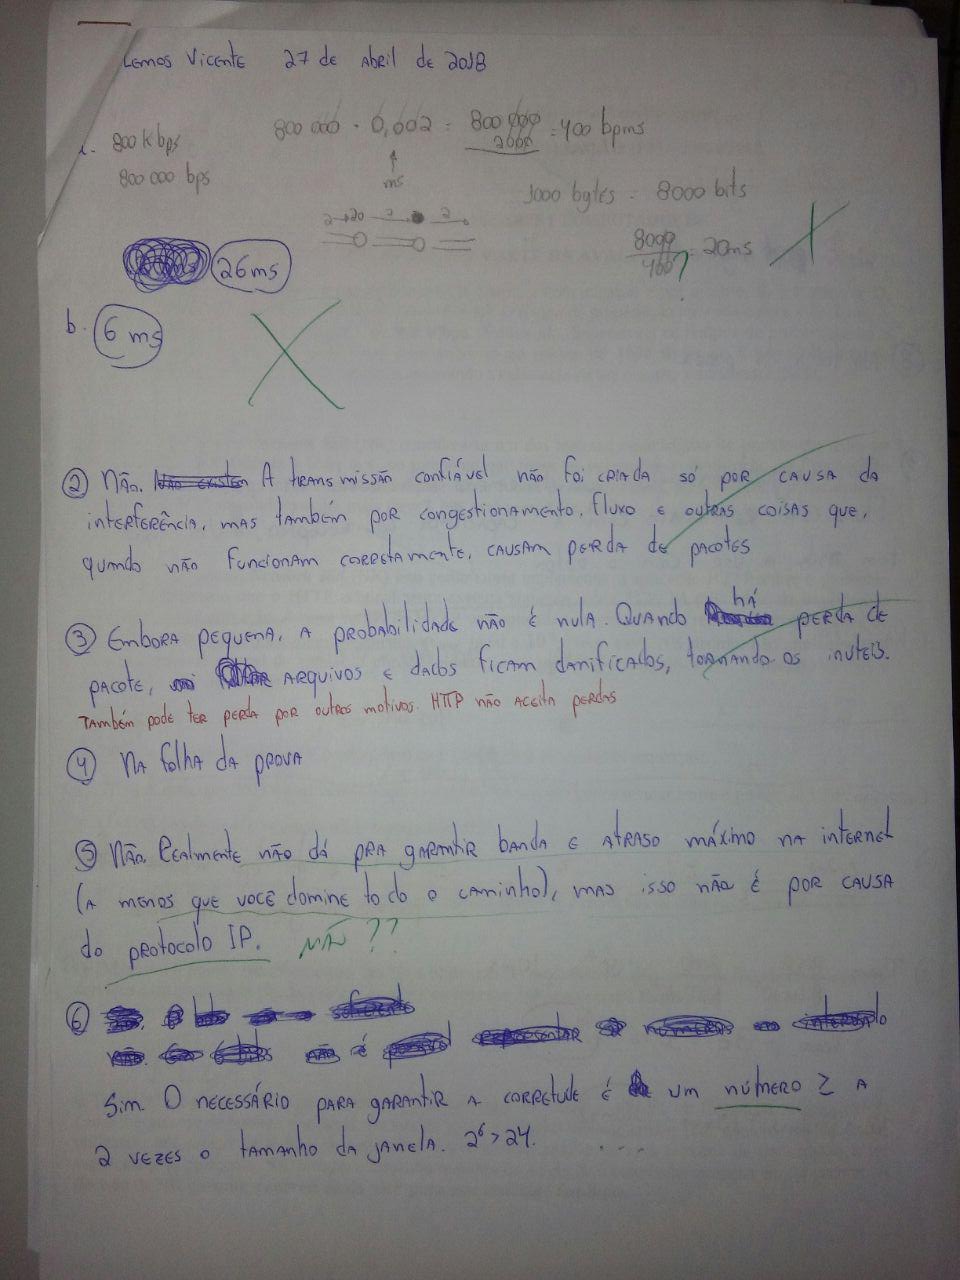 Lemos Vicente 27 de Abril de 2018
1. 800 kbps
800 000 bps
800 000 · 0,002 = 800 000 / 2000 = 400 bpms
ms
1000 bytes = 8000 bits
2 → 20 2 2
8000 / 400 = 20ms
?
26ms
b. 6 ms
2 Não. Não existem A transmissão confiável não foi criada só por causa da
interferência, mas também por congestionamento, fluxo e outras coisas que,
quando não funcionam corretamente, causam perda de pacotes
3 Embora pequena, a probabilidade não é nula. Quando há perda de
pacote, arquivos e dados ficam danificados, tornando-os inuteis.
Também pode ter perda por outros motivos. HTTP não aceita perdas
4 Na folha da prova
5 Não. Realmente não dá pra garantir banda e atraso máximo na internet
(a menos que você domine todo o caminho), mas isso não é por causa
do protocolo IP. NÃO ??
6
não é
Sim. O necessário para garantir a corretude é um número ≥ a
2 vezes o tamanho da janela. 2⁶ > 24. ...